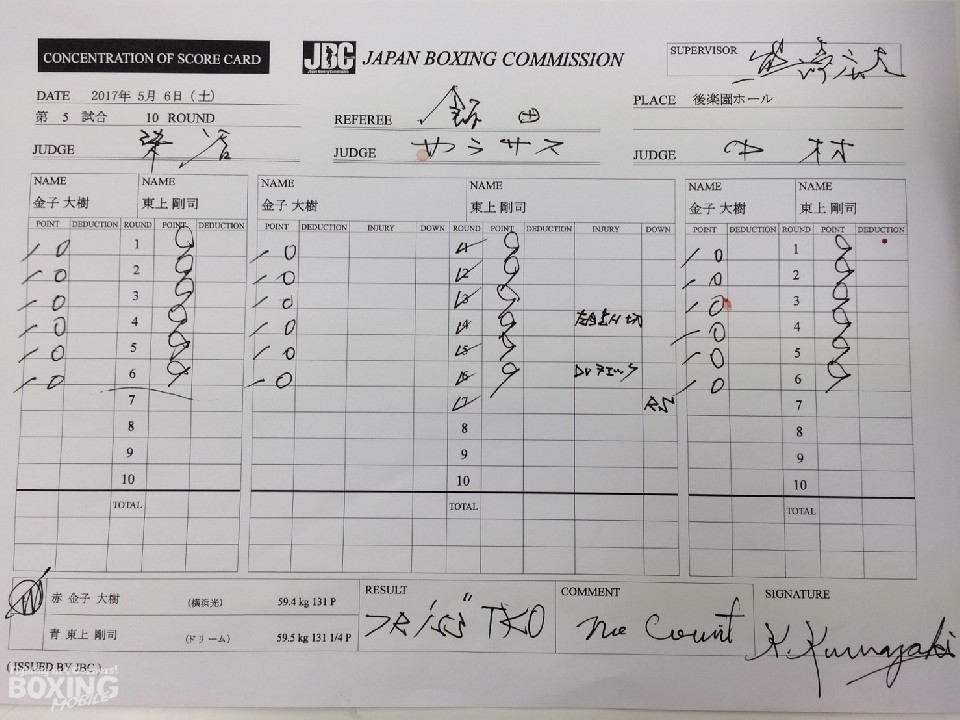 CONCENTRATION OF SCORE CARD
JBC JAPAN BOXING COMMISSION
SUPERVISOR
DATE 2017年 5月 6日 (土)
PLACE 後楽園ホール
第 5 試合 10 ROUND
REFEREE 飯田
JUDGE
JUDGE
JUDGE 中村
NAME NAME NAME NAME NAME NAME
金子 大樹 東上 剛司 金子 大樹 東上 剛司 金子 大樹 東上 剛司
POINT DEDUCTION ROUND POINT DEDUCTION POINT DEDUCTION INJURY DOWN ROUND POINT DEDUCTION INJURY DOWN POINT DEDUCTION ROUND POINT DEDUCTION
10 1 9 10 1 9 10 1 9
10 2 9 10 2 9 10 2 9
10 3 9 10 3 9 10 3 9
10 4 9 10 4 9 10 4 9
10 5 9 10 5 9 10 5 9
10 6 9 10 6 9 10 6 9
7 7 7
8 8 8
9 9 9
10 10 10
TOTAL TOTAL TOTAL
赤 金子 大樹 (横浜光) 59.4 kg 131 P
青 東上 剛司 (ドリーム) 59.5 kg 131 1/4 P
RESULT
7R 1'55" TKO
COMMENT
no count
SIGNATURE
(ISSUED BY JBC)
BOXING
MOBILE